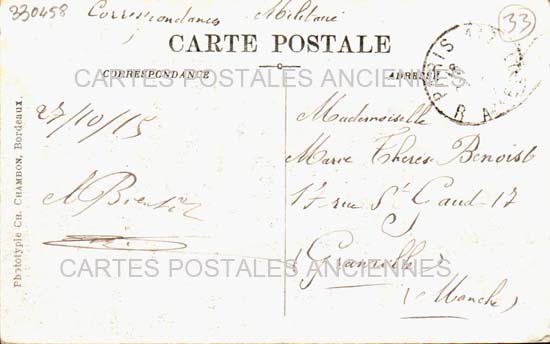 330458 Correspondance Militaire
33
CARTE POSTALE
CARTES POSTALES ANCIENNES
CORRESPONDANCE
ADRESSE
PARIS
R. A
27/10/15
Mademoiselle
Marie Therese Benoist
17 rue St Gaud - 17
Granville
(Manche)
CARTES POSTALES ANCIENNES
Phototypie CH. CHAMBON, Bordeaux.